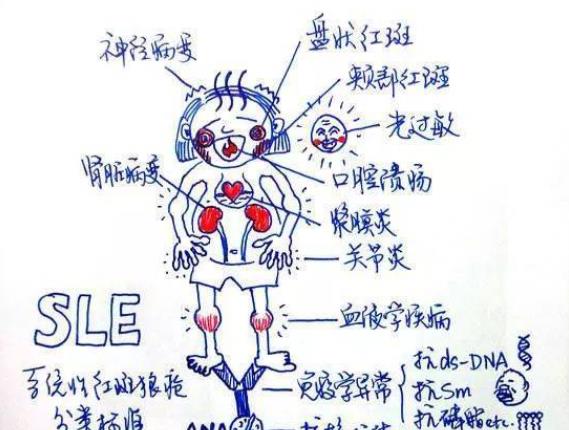 神经病变
盘状红斑
颊部红斑
光过敏
肾脏病变
口腔溃疡
浆膜炎
关节炎
SLE
血液学疾病
系统性红斑狼疮
分类标准
免疫学异常
抗ds-DNA
抗Sm
抗磷脂etc.
ANA
抗核抗体